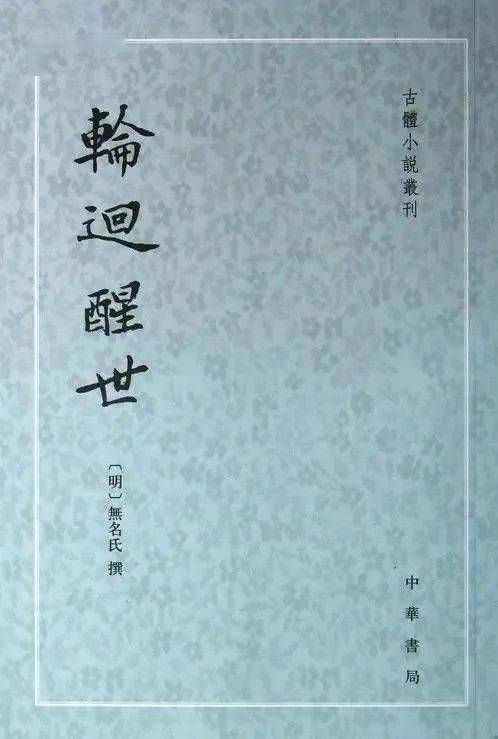 古體小説叢刊
輪迴醒世
〔明〕無名氏 撰
中華書局